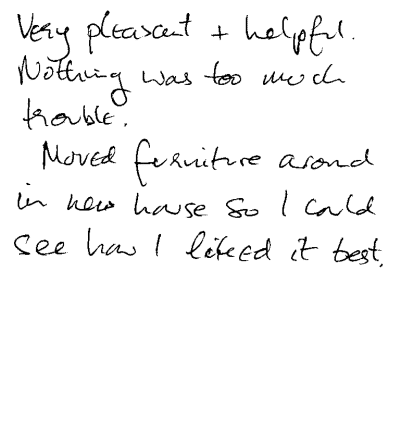 Very pleasant + helpful.
Nothing was too much
trouble.
Moved furniture around
in new house so I could
see how I liked it best.